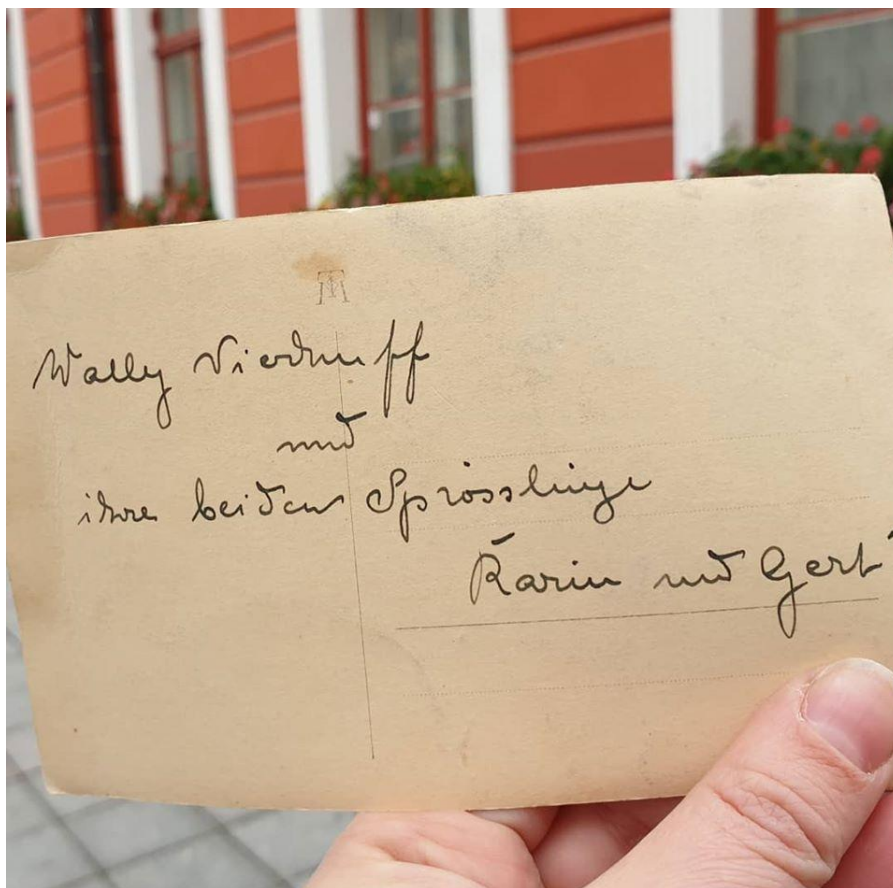 Wally Vierhuff
und
ihre beiden Sprösslinge
Karin und Gert